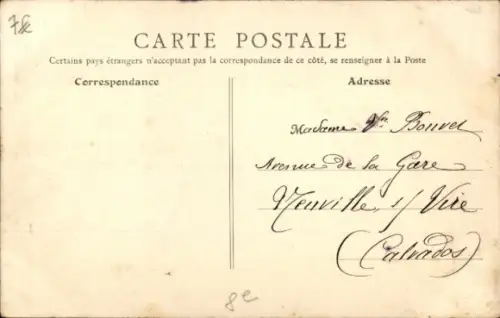 CARTE POSTALE
Certains pays étrangers n'acceptant pas la correspondance de ce côté, se renseigner à la Poste
Correspondance
Adresse
Madame Vve Bouvet
Avenue de la Gare
Neuville s/ Vire
(Calvados)
8e